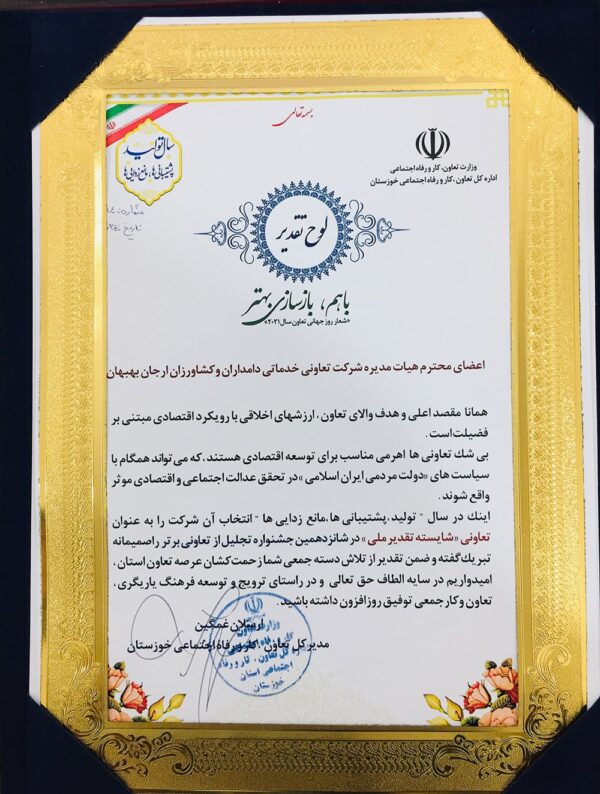 بسمه تعالی
سال تولید
پشتیبانی ها، مانع زدایی ها
وزارت تعاون، کار و رفاه اجتماعی
اداره کل تعاون ،کار و رفاه اجتماعی خوزستان
شماره:
تاریخ:
لوح تقدیر
باهم، بازسازی بهتر
«شعار روز جهانی تعاون سال ۲۰۲۱»
اعضای محترم هیات مدیره شرکت تعاونی خدماتی دامداران و کشاورزان ارجان بهبهان
همانا مقصد اعلی و هدف والای تعاون ، ارزشهای اخلاقی با رویکرد اقتصادی مبتنی بر
فضیلت است.
بی شك تعاونی ها اهرمی مناسب برای توسعه اقتصادی هستند،که می تواند همگام با
سیاست های «دولت مردمی ایران اسلامی »در تحقق عدالت اجتماعی و اقتصادی موثر
واقع شوند.
اینك در سال " تولید،پشتیبانی ها،مانع زدایی ها " انتخاب آن شرکت را به عنوان
تعاونی «شایسته تقدیر ملی » در شانزدهمین جشنواره تجلیل از تعاونی برتر راصمیمانه
تبریك گفته و ضمن تقدیر از تلاش دسته جمعی شما زحمت کشان عرصه تعاون استان ،
امیدواریم در سایه الطاف حق تعالی و در راستای ترویج و توسعه فرهنگ یاریگری ،
تعاون و کار جمعی توفیق روزافزون داشته باشید.
ارسلان غمگین
مدیر کل تعاون ،کار و رفاه اجتماعی خوزستان
وزارت تعاون
کار و رفاه اجتماعی
اداره کل تعاون ، کار و رفاه
اجتماعی استان
خوزستان